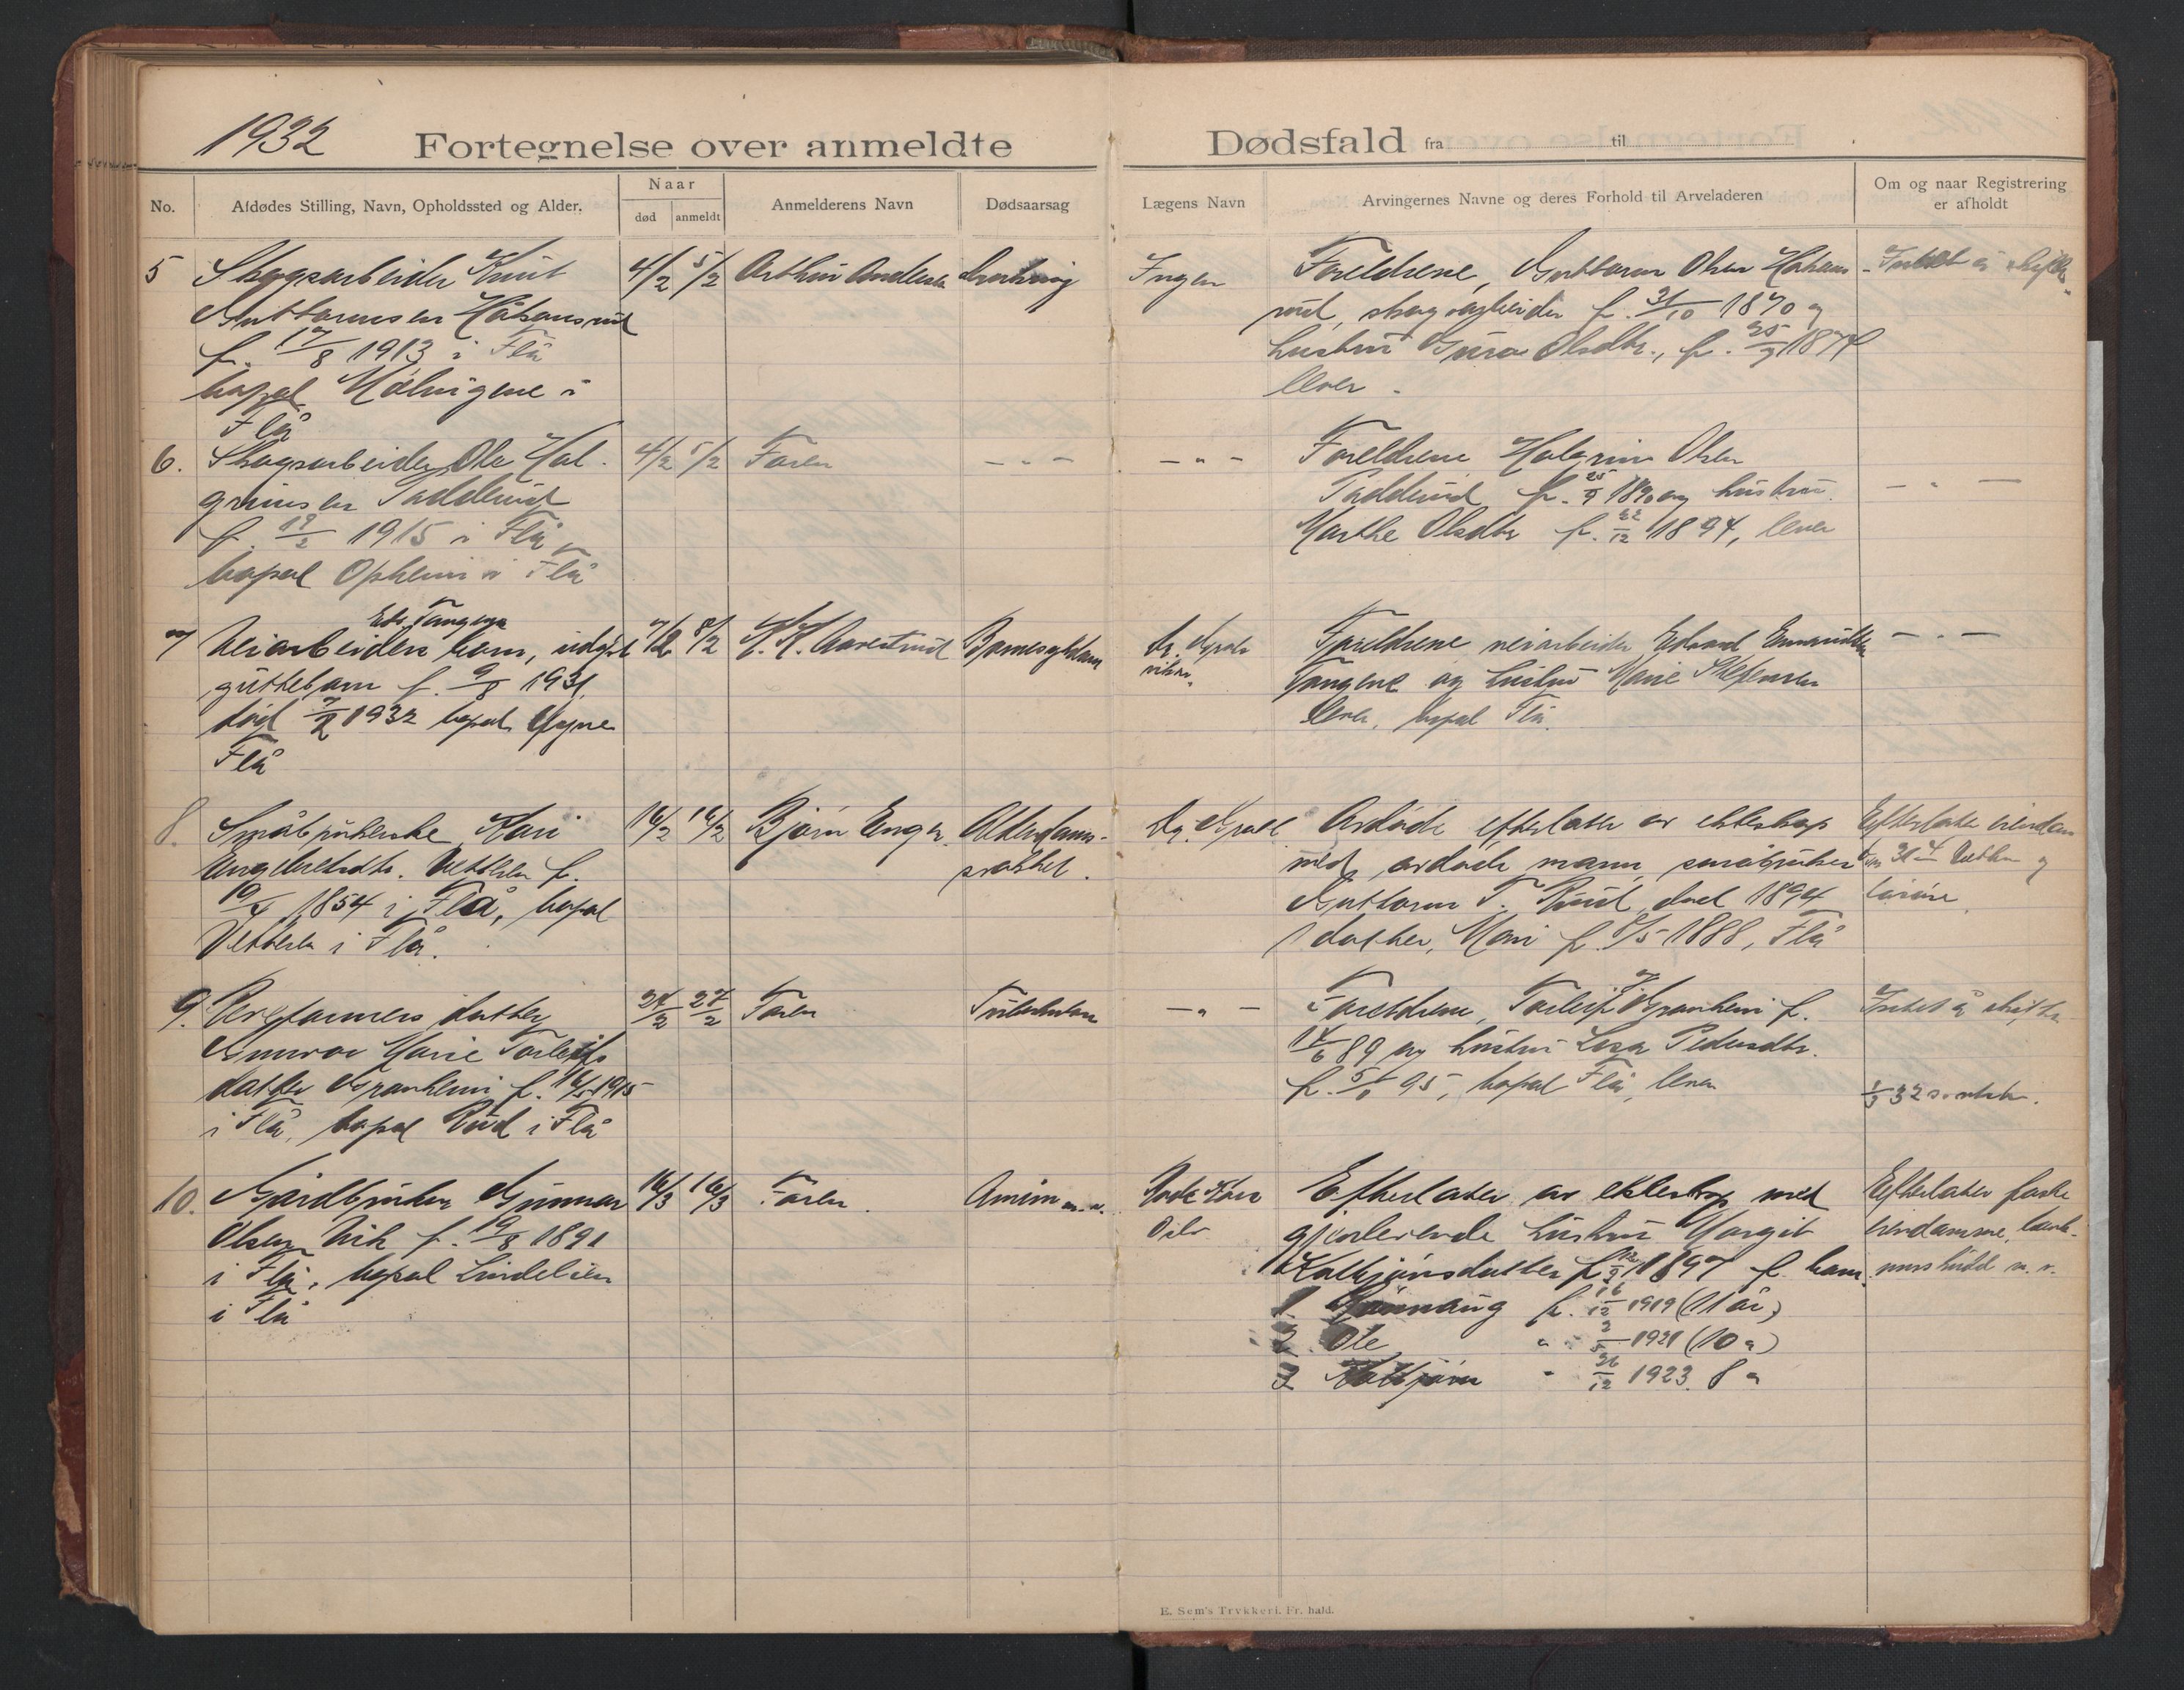 1932
Fortegnelse over anmeldte Dødsfald fra til
No.
Afdødes Stilling, Navn, Opholdssted og Alder.
Naar
død
anmeldt
Anmelderens Navn
Dødsaarsag
Lægens Navn
Arvingernes Navne og deres Forhold til Arveladeren
Om og naar Registrering
er afholdt
5 Skogsarbeider Knut
Guttormsen Håkansrud
f. 17/8 1913 i Flå
bopæl i
Flå
4/2 5/2
Arthur Andersen
drukning
Ingen
Foreldrene, Guttorm Olsen Hakans
rud, skogsarbeider f. 31/10 1870 og
hustru Guro Olsdtr., f.
lever.
Intet å skifte
6. Skogsarbeider Ole Hal-
grimsen Padderud
f. 19/2 1915 i Flå
bopæl Opheim i Flå
4/2 5/2
Faren
- " -
- " -
Foreldrene Halgrim Olsen
Padderud f. 25/9 1890 og hustru
Marthe Olsdtr f. 22/12 1894, lever
- " -
7 Edv. Tangene
Veiarbeiders barn, udøpt
guttebarn f. 9/8 1931
død 7/2 1932 bopæl
Flå
7/2 8/2
K. K. Aavestrud
Barnesykdom
Dr.
Foreldrene veiarbeider Edvard
Tangene og hustru Marie
lever, bopæl Flå.
- " -
8. Småbrukerske Kari
Engebretsdtr. Vetteren f.
19/4 1854 i Flå, bopæl
Vetteren i Flå.
16/2 16/2
Bjørn Enger.
Alderdoms-
svakhet.
Dr.
Avdøde efterlater av ekteskap
med avdøde mann, småbruker
Guttorm T. Ruud død 1894
1 datter, Mari f. 8/5 1888, Flå
Efterlater eiendom
og
løsøre
9. datter
Gunvor Marie Torleifs
datter Granheim f. 16/5 1915
i Flå, bopæl Ruud i Flå
27/2 27/2
Faren
Tuberkulose
- " -
Foreldrene, Torleif Granheim f.
89 og hustru Pedersdtr.
f. 95, bopæl Flå, lever
Intet å skifte
10. Gårdbruker Gunnar
Olsen Vik f. 19/8 1891
i Flå, bopæl Lindelien
i Flå
16/3 16/3
Faren.
Oslo
Efterlater av ekteskap med
gjenlevende hustru Margit
Kolbjørnsdatter f. 1897 f. barn.
1. Gunnaug f. 16/12 1919 (11 år)
2. Ole " " 2/5 1921 (10 ")
3 Kolbjørn " 26/12 1923. 8 "
Efterlater faste
eiendomme,
E. Sem's Trykkeri. Fr. hald.